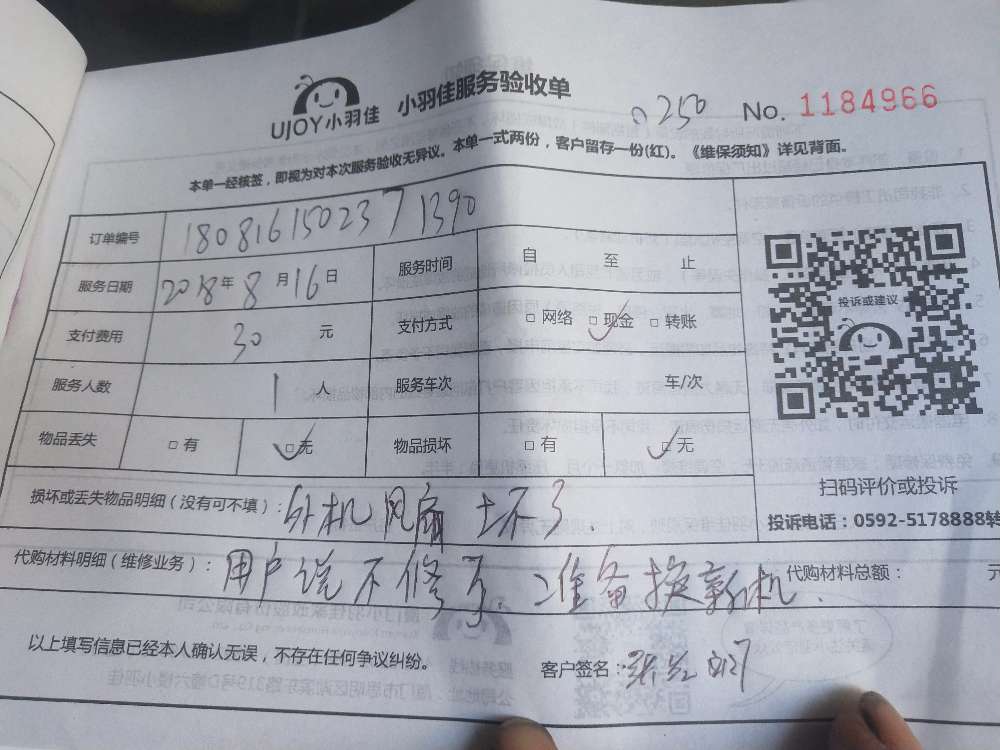 UJOY小羽佳 小羽佳服务验收单 0250 No. 1184966
本单一经核签，即视为对本次服务验收无异议。本单一式两份，客户留存一份(红)。《维保须知》详见背面。
订单编号 1808161502371390
服务日期 2018年8月16日 服务时间 自 至 止
支付费用 30 元 支付方式 □ 网络 □ 现金 □ 转账
服务人数 1 人 服务车次 车/次
物品丢失 □ 有 □ 无 物品损坏 □ 有 □ 无
投诉或建议
扫码评价或投诉
投诉电话：0592-5178888转
损坏或丢失物品明细（没有可不填）：外机风扇坏了.
代购材料明细（维修业务）：用户说不修了.准备换新机. 代购材料总额： 元
以上填写信息已经本人确认无误，不存在任何争议纠纷。 客户签名：